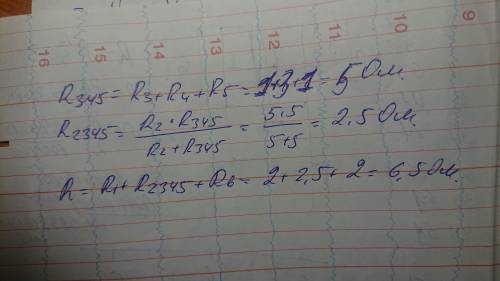 9
10
11
12
13
14
15
16
R345 = R3 + R4 + R5 = 1+3+1 = 5 Ом.
R2345 = R2 · R345 / R2 + R345 = 5·5 / 5+5 = 2,5 Ом.
R = R1 + R2345 + R6 = 2 + 2,5 + 2 = 6,5 Ом.